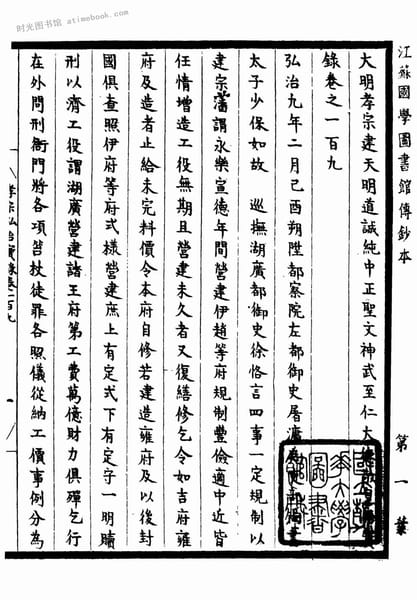 时光图书馆 - atimebook.com
江蘇國學圖書館傳鈔本
第一葉
大明孝宗建天明道誠純中正聖文神武至仁大
錄卷之一百九
弘治九年二月己酉朔陞都察院左都御史屠滽
太子少保如故 巡撫湖廣都御史徐恪言四事一定規制以
建宗藩謂永樂宣德年間營建伊趙等府規制豐儉適中近皆
任情增造工役無期且營建未久者又復繕修乞令如吉府雍
府及造者止給未完料價令本府自修若建造雍府及以後封
國俱查照伊府等府式樣營建庶上有定式下有定守一明贖
刑以濟工役謂湖廣營建諸王府第工費萬億財力俱殫乞行
在外問刑衙門將各項笞杖徒罪各照儀從納工價事例分為
孝宗弘治實錄卷一百九
一
國立
大學
圖書